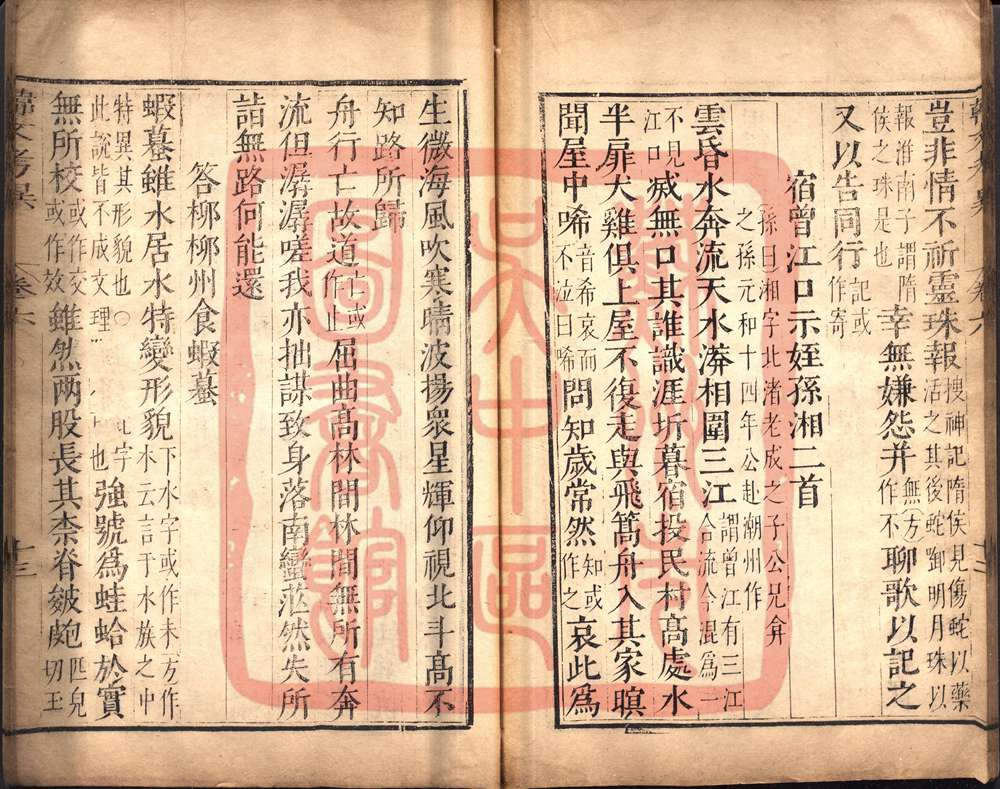 豈非情不祈靈珠報搜神記隋侯見傷蛇以藥活之其後蛇啣明月珠以
報淮南子謂隋侯之珠是也幸無嫌怨并方無作不聊歌以記之
又以告同行記或作寄
宿曾江口示姪孫湘二首
孫曰湘字北渚老成之子公兄弇之孫元和十四年公赴潮州作
雲昏水奔流天水漭相圍三江謂曾江有三江合流今混為一
江口不見滅無口其誰識涯圻暮宿投民村高處水
半扉犬雞俱上屋不復走與飛篙舟入其家暝
聞屋中唏音希哀而不泣曰唏問知歲常然知或作之哀此為
生微海風吹寒晴波揚衆星輝仰視北斗高不
知路所歸
舟行亡故道亡或作止屈曲高林間林間無所有奔
流但潺潺嗟我亦拙謀致身落南蠻茫然失所
詣無路何能還
答柳柳州食蝦蟇
蝦蟇雖水居水特變形貌下水字或作未方作木云言于水族之中
特異其形貌也〇此說皆不成文理 字 也強號為蛙蛤於實
無所校或作交或作效雖然兩股長其柰脊皴皰匹皃切王
韓文考異
卷六
十三